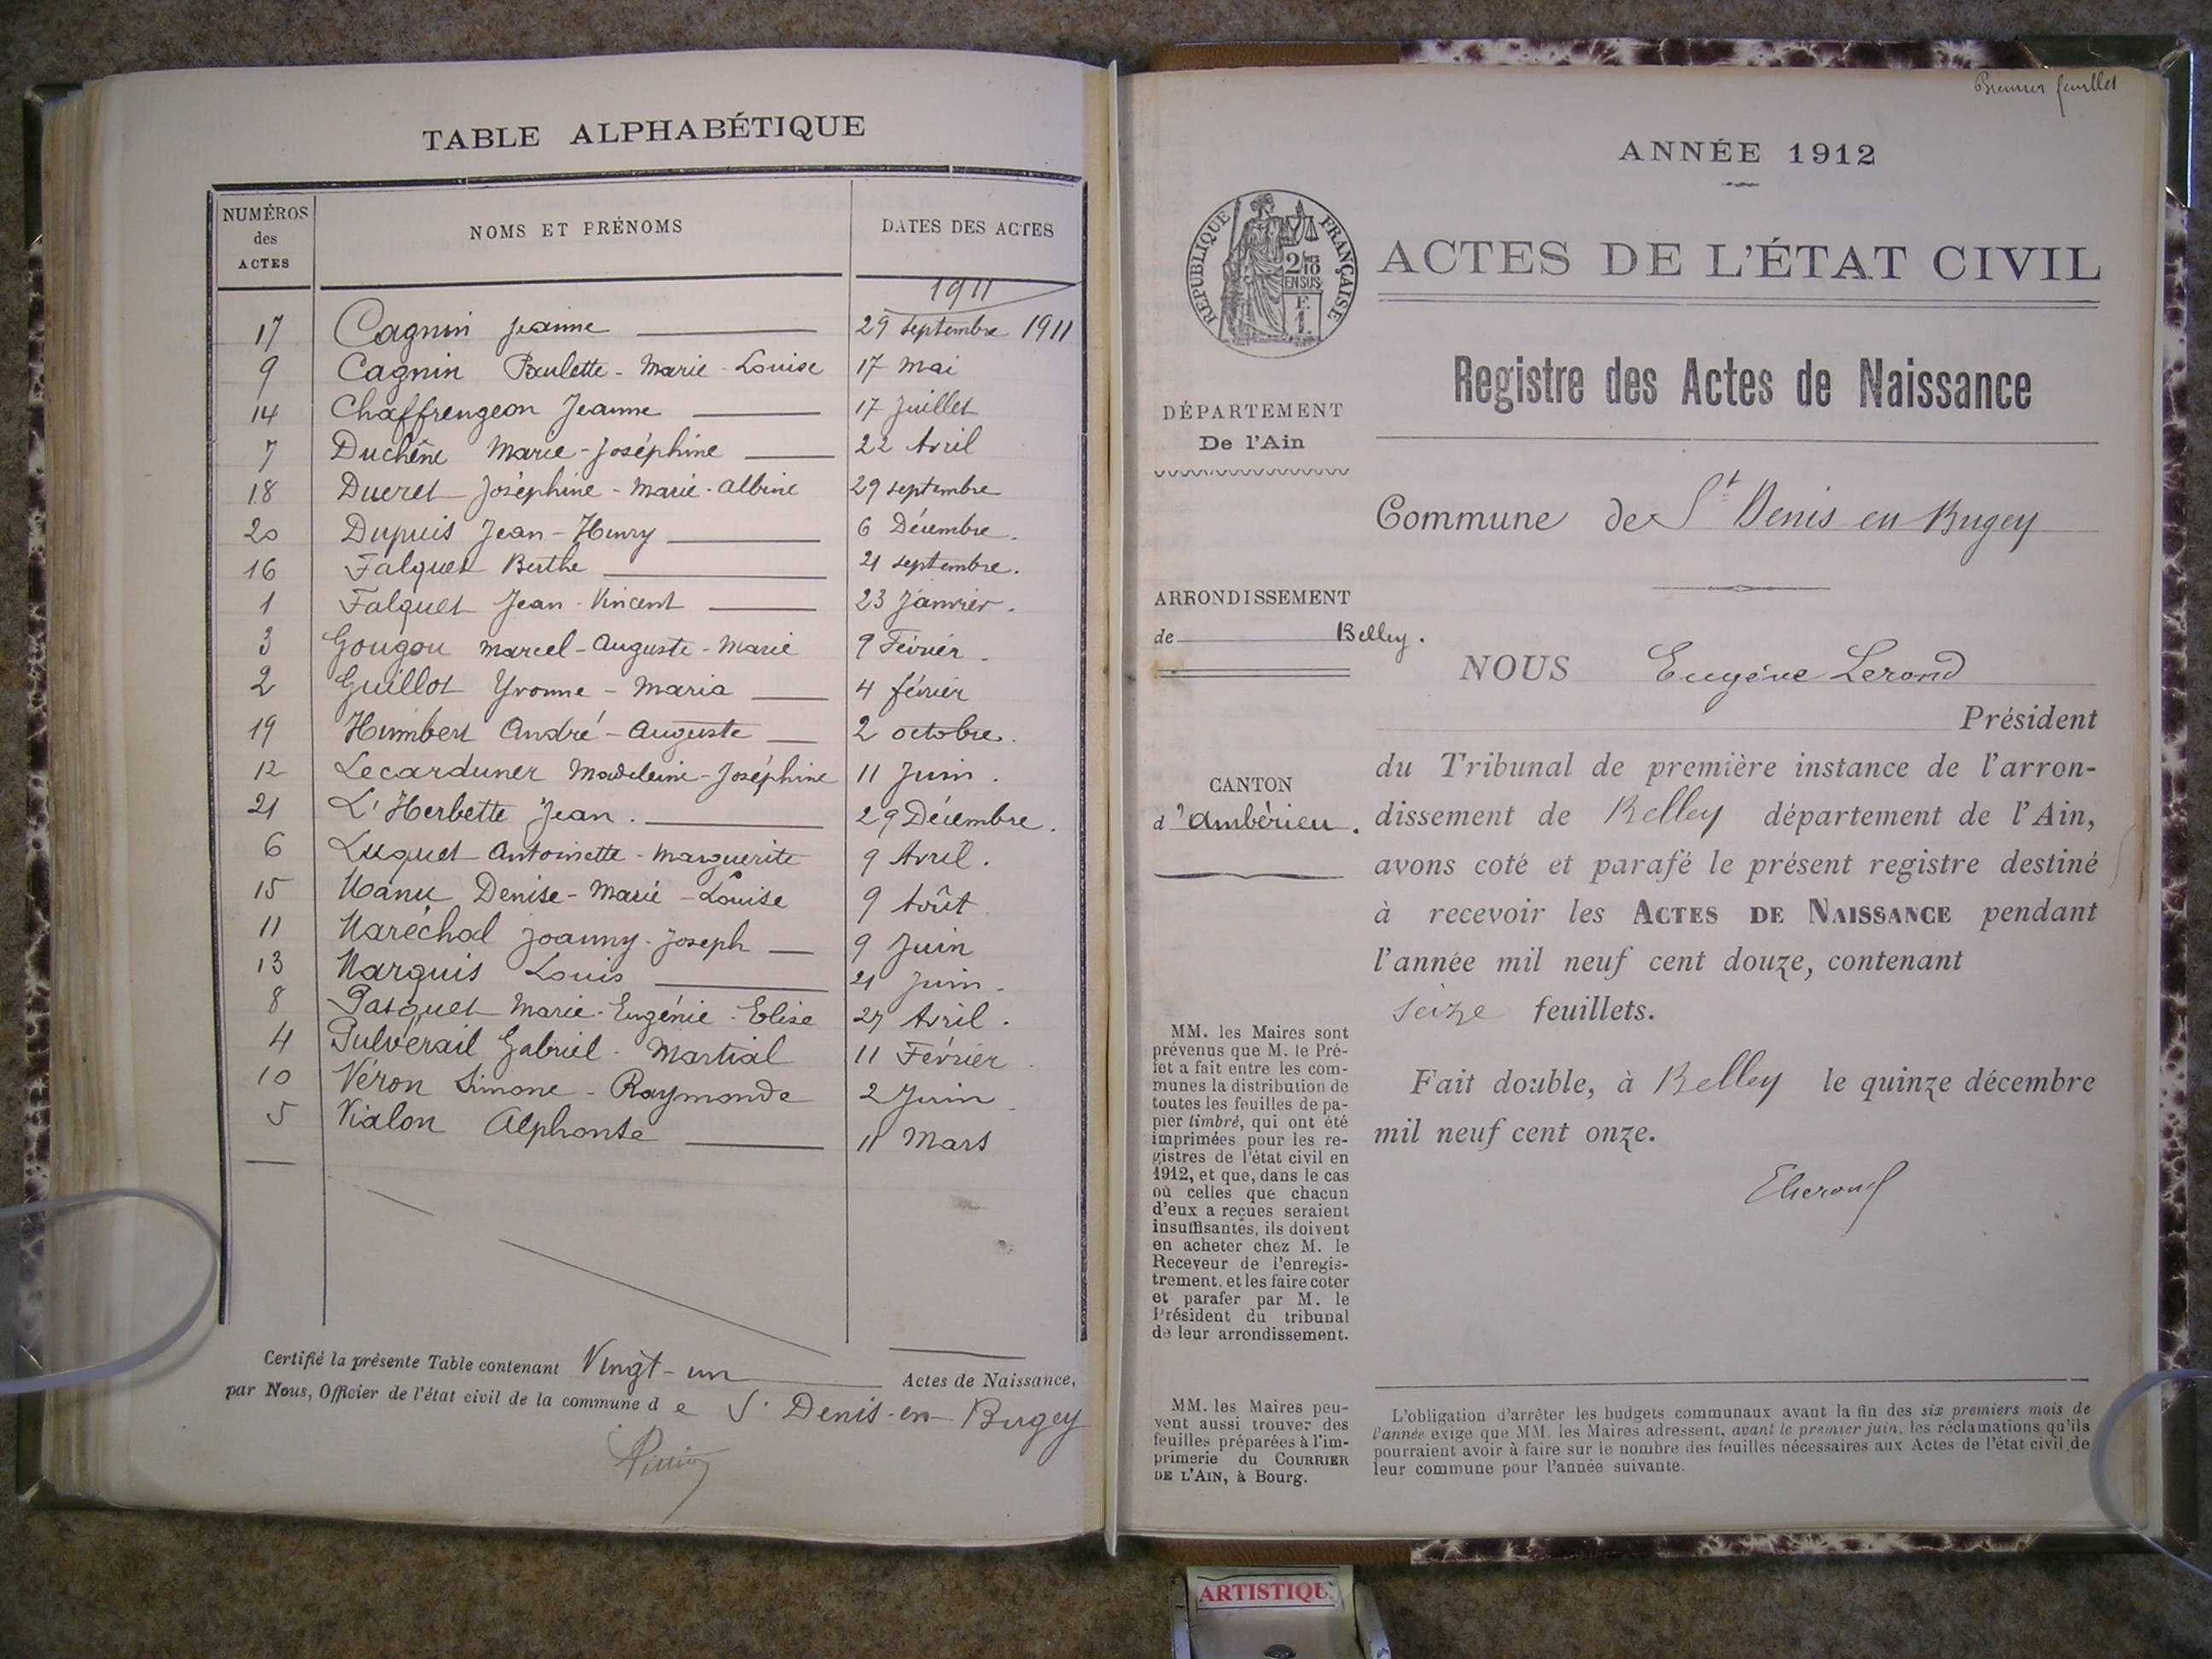 TABLE ALPHABÉTIQUE
NUMÉROS des ACTES NOMS ET PRÉNOMS DATES DES ACTES
1911
17 Cagnin Jeanne 29 septembre 1911
9 Cagnin Paulette - Marie - Louise 17 mai
14 Chaffrengeon Jeanne 17 Juillet
7 Duchêne Marie - Joséphine 22 Avril
18 Ducret Joséphine - Marie - Albine 29 septembre
20 Dupuis Jean - Henry 6 Décembre.
16 Falquet Berthe 21 septembre.
1 Falquet Jean - Vincent 23 Janvier.
3 Gougou Marcel - Auguste - Marie 9 Février.
2 Guillot Yvonne - Maria 4 février
19 Humbert André - Auguste 2 octobre.
12 Lecarduner Madeleine - Joséphine 11 Juin.
21 L'Herbette Jean. 29 Décembre.
6 Luquet Antoinette - Marguerite 9 Avril.
15 Manu Denise - Marie - Louise 9 Août
11 Maréchal Joanny - Joseph 9 Juin
13 Marquis Louis 21 Juin.
8 Pasquet Marie - Eugénie - Elise 27 Avril.
4 Pulvérail Gabriel - Martial 11 Février
10 Véron Simone - Raymonde 2 Juin
5 Vialon Alphonse 11 Mars
Certifié la présente Table contenant Vingt-un Actes de Naissance,
par Nous, Officier de l'état civil de la commune de St Denis-en-Bugey
Premier feuillet
ANNÉE 1912
RÉPUBLIQUE FRANÇAISE
2/10
EN SUS
F.
1.
ACTES DE L'ÉTAT CIVIL
Registre des Actes de Naissance
DÉPARTEMENT
De l'Ain
Commune de St Denis en Bugey
ARRONDISSEMENT
de Belley.
CANTON
d'Ambérieu.
NOUS Eugène Lerond
Président
du Tribunal de première instance de l'arron-
dissement de Belley département de l'Ain,
avons coté et parafé le présent registre destiné
à recevoir les ACTES DE NAISSANCE pendant
l'année mil neuf cent douze, contenant
seize feuillets.
Fait double, à Belley le quinze décembre
mil neuf cent onze.
ELerond
MM. les Maires sont
prévenus que M. le Pré-
fet a fait entre les com-
munes la distribution de
toutes les feuilles de pa-
pier timbré, qui ont été
imprimées pour les re-
gistres de l'état civil en
1912, et que, dans le cas
où celles que chacun
d'eux a reçues seraient
insuffisantes, ils doivent
en acheter chez M. le
Receveur de l'enregis-
trement, et les faire coter
et parafer par M. le
Président du tribunal
de leur arrondissement.
MM. les Maires peu-
vent aussi trouver des
feuilles préparées à l'im-
primerie du COURRIER
DE L'AIN, à Bourg.
L'obligation d'arrêter les budgets communaux avant la fin des six premiers mois de
l'année exige que MM. les Maires adressent, avant le premier juin, les réclamations qu'ils
pourraient avoir à faire sur le nombre des feuilles nécessaires aux Actes de l'état civil de
leur commune pour l'année suivante.
ARTISTIQU